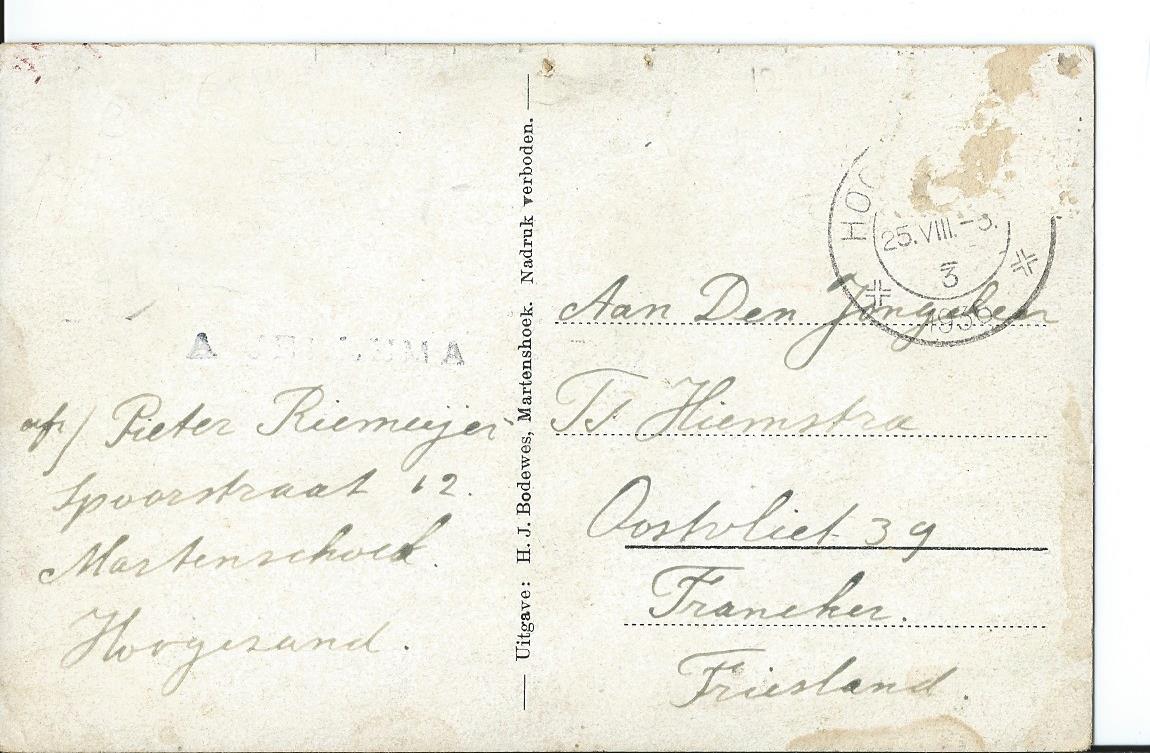 afz/ Pieter Riemeijer
Spoorstraat 12.
Martenschoek.
Hoogesand.
Uitgave: H. J. Bodewes, Martenshoek. Nadruk verboden.
HOO
25.VIII.-3.
3
1936
Aan Den Jongeheer
Hiemstra
Oostvliet 39
Franeker.
Friesland.